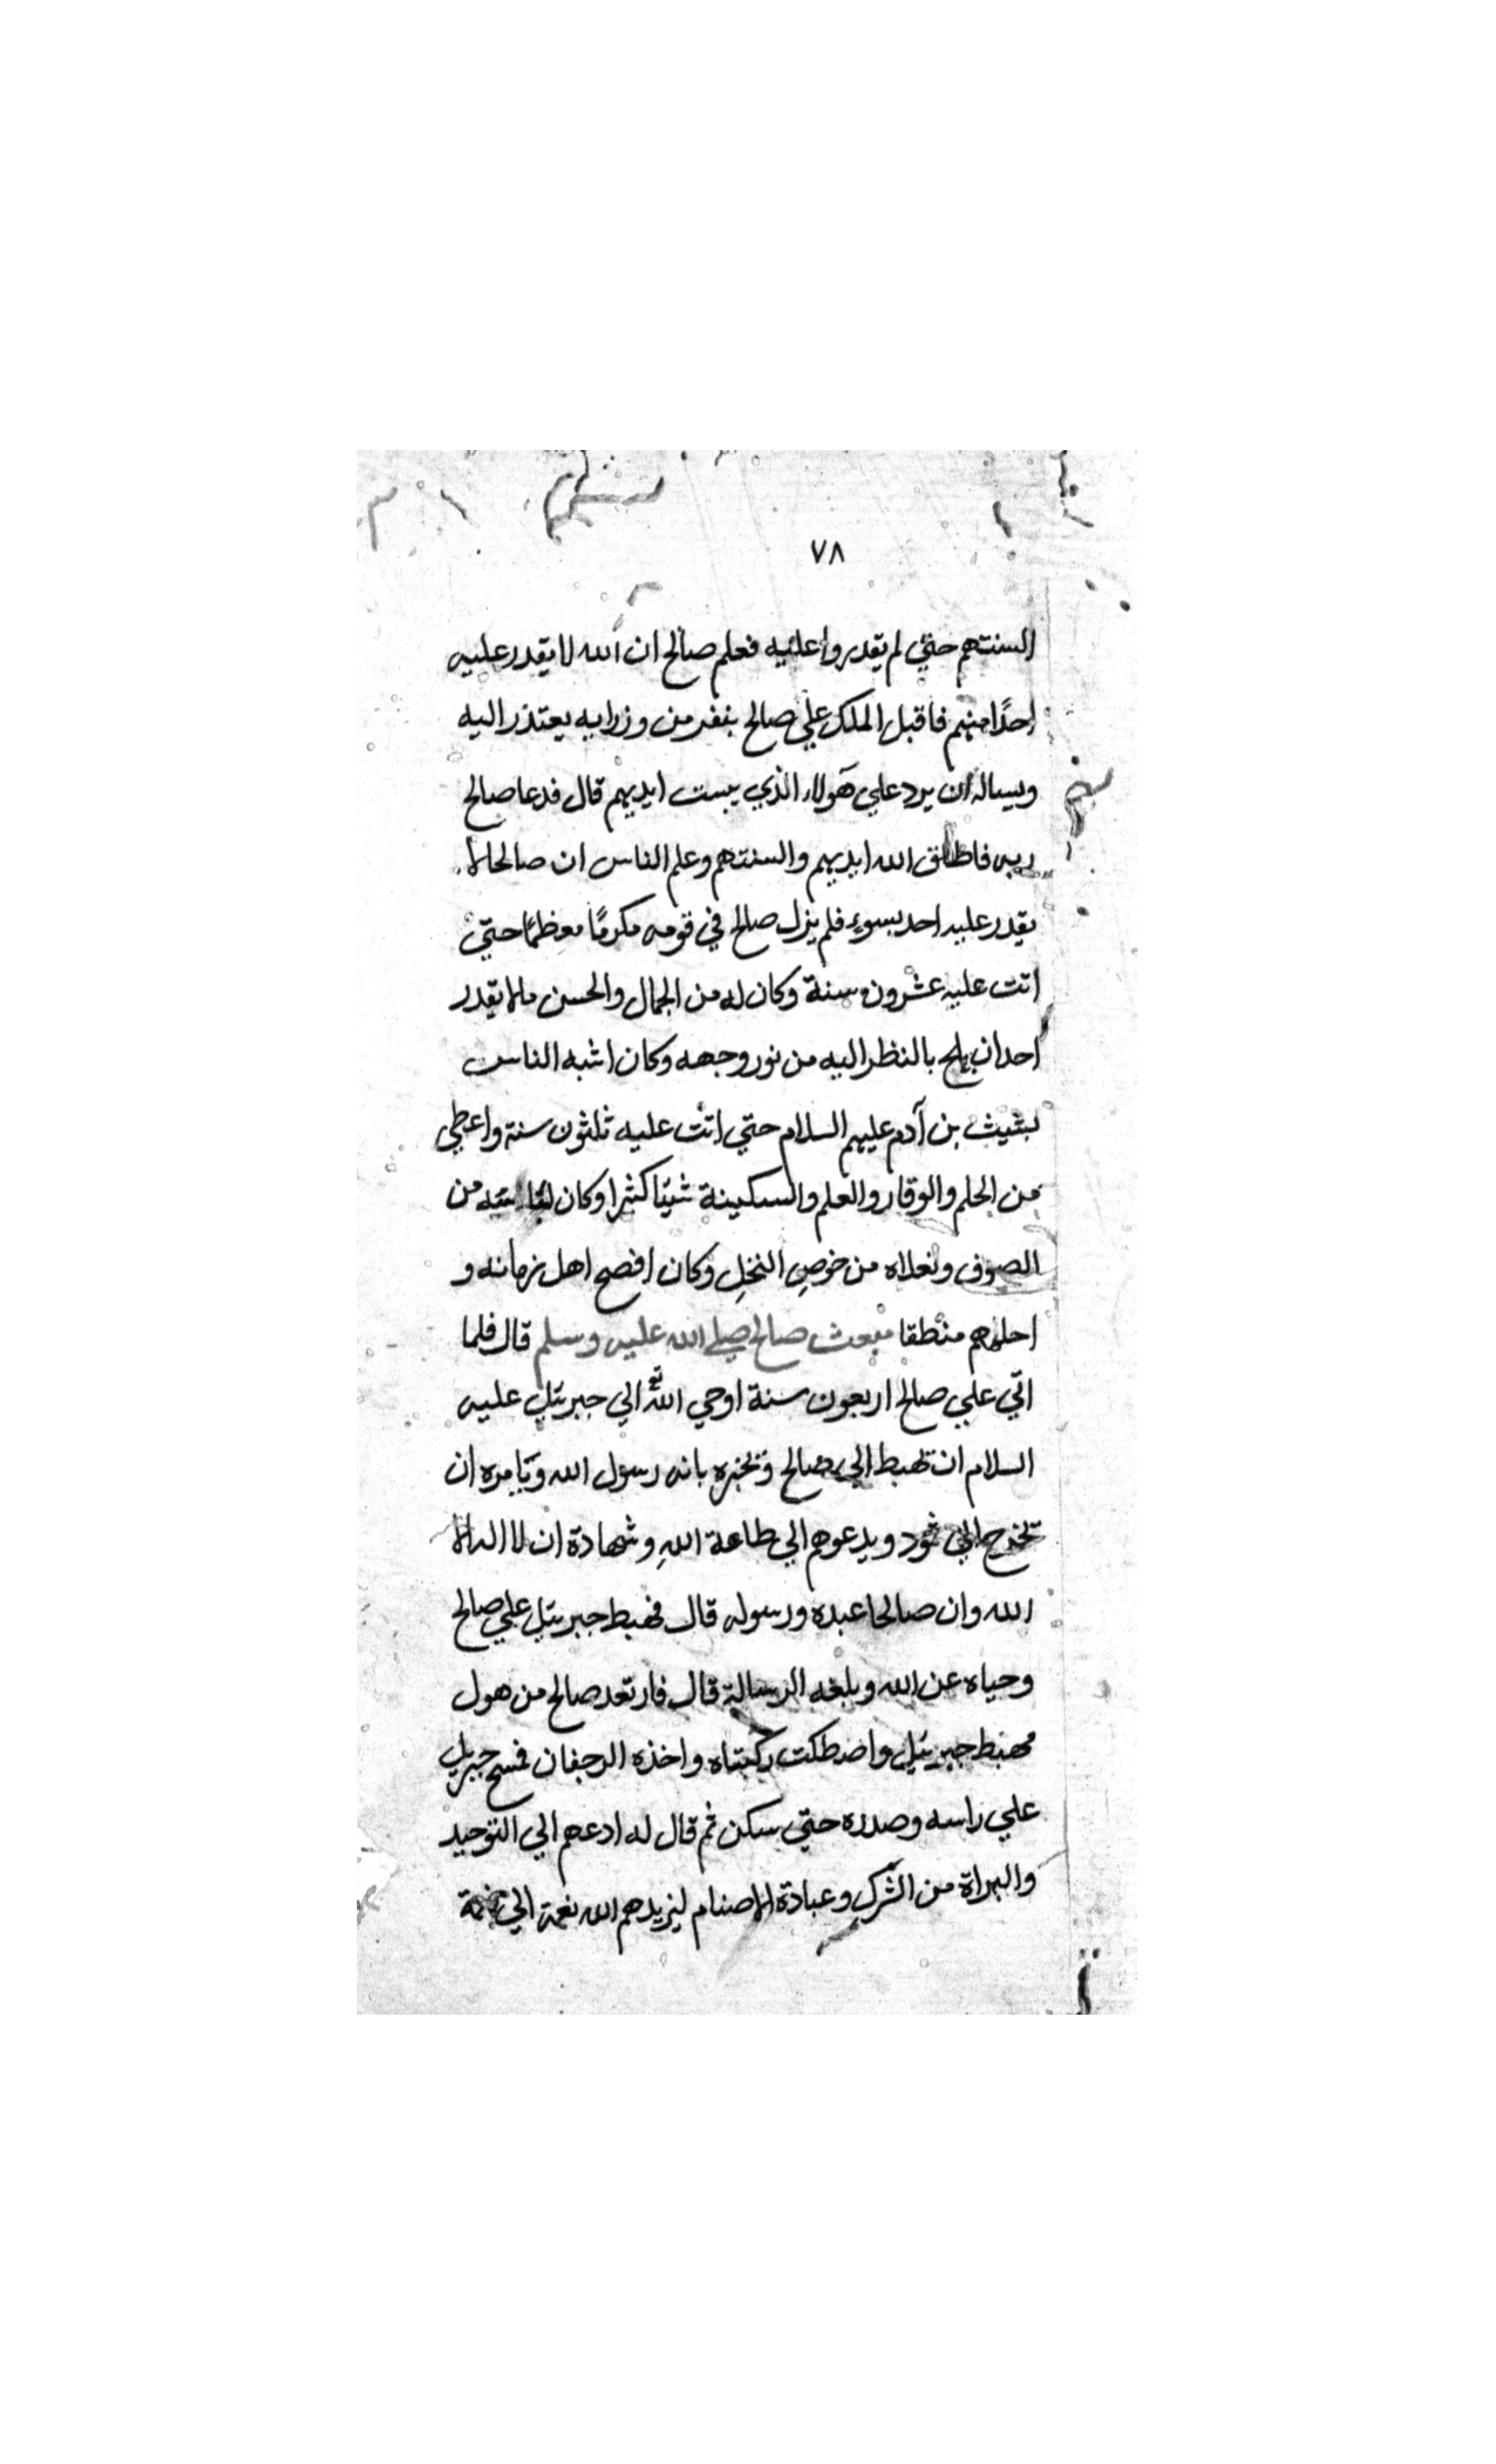 ٧٨
السنتهم حتي لم يقدروا عليه فعلم صالح ان الله لا يقدر عليه
احدًا منهم فاقبل الملك علي صالح بنفر من وزرايه يعتذر اليه
ويساله ان يرد علي هولاء الذي يبست ايديهم قال فدعا صالح
ربه فاطلق الله ايديهم والسنتهم وعلم الناس ان صالحا لا
يقدر عليه احد بسوء فلم يزل صالح في قومه مكرمًا معظمًا حتي
اتت عليه عشرون سنة وكان له من الجمال والحسن ما لا يقدر
احد ان يلح بالنظر اليه من نور وجهه وكان اشبه الناس
بشيث بن آدم عليهم السلام حتي اتت عليه ثلثون سنة واعطي
من الحلم والوقار والعلم والسكينة شيئا كثيرا وكان من
الصوف ونعلاه من خوصِ النخلِ وكان افصح اهل زمانه و
احلاهم منطقا مبعث صالح صلي الله عليه وسلم قال فلما
اتي علي صالح اربعون سنة اوحي الله تع الي جبرئيل عليه
السلام ان تهبط الي صالح وتخبره بانه رسول الله وتامره ان
تخرج الي ثمود ويدعوهم الي طاعة اللهِ وشهادة ان لا اله الا
الله وان صالحا عبده ورسوله قال فهبط جبرئيل علي صالح
وحياه عن الله وبلغه الرسالة قال فارتعد صالح من هول
مهبط جبرئيل واصطكت ركبتاه واخذه الرجفان فمسح جبريل
علي راسه وصدره حتي سكن ثم قال له ادعهم الي التوحيد
والبراة من الشرك وعبادة الاصنام ليزيدهم الله نعمة الي